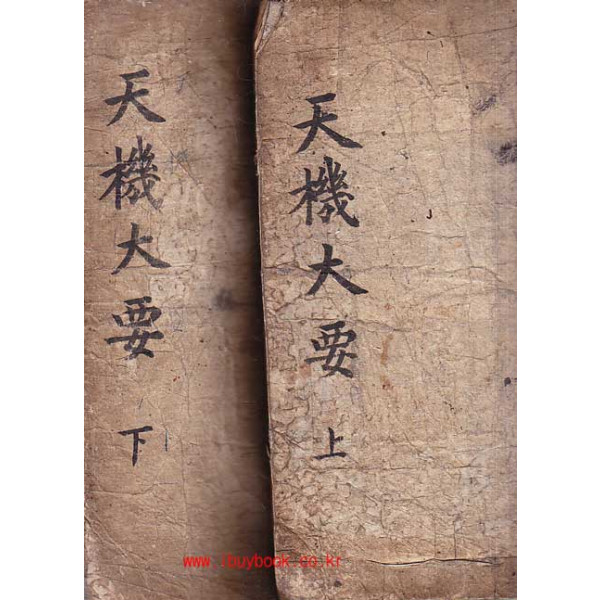 天機大要 上
天機大要 下
www.ibuybook.co.kr